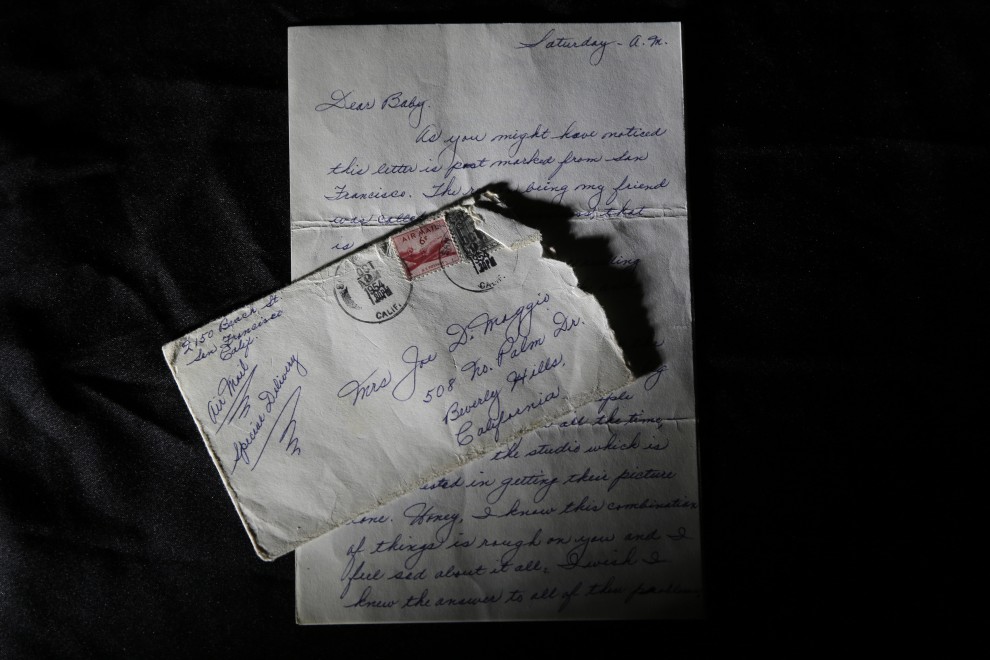 Saturday - A.M.
Dear Baby,
As you might have noticed
this letter is post marked from San
Francisco. The being my friend
was that
is
ing
ple
all the time,
the studio which is
ested in getting their picture
one. Honey, I know this combination
of things is rough on you and I
feel sad about it all, I wish I
knew the answer to all of this
2150 Beach St
San Francisco
Calif.
Air Mail
Special Delivery
AIR MAIL
6¢
OCT
1954
CALIF.
CALIF.
Mrs Joe Di Maggio
508 No. Palm Dr.
Beverly Hills,
California